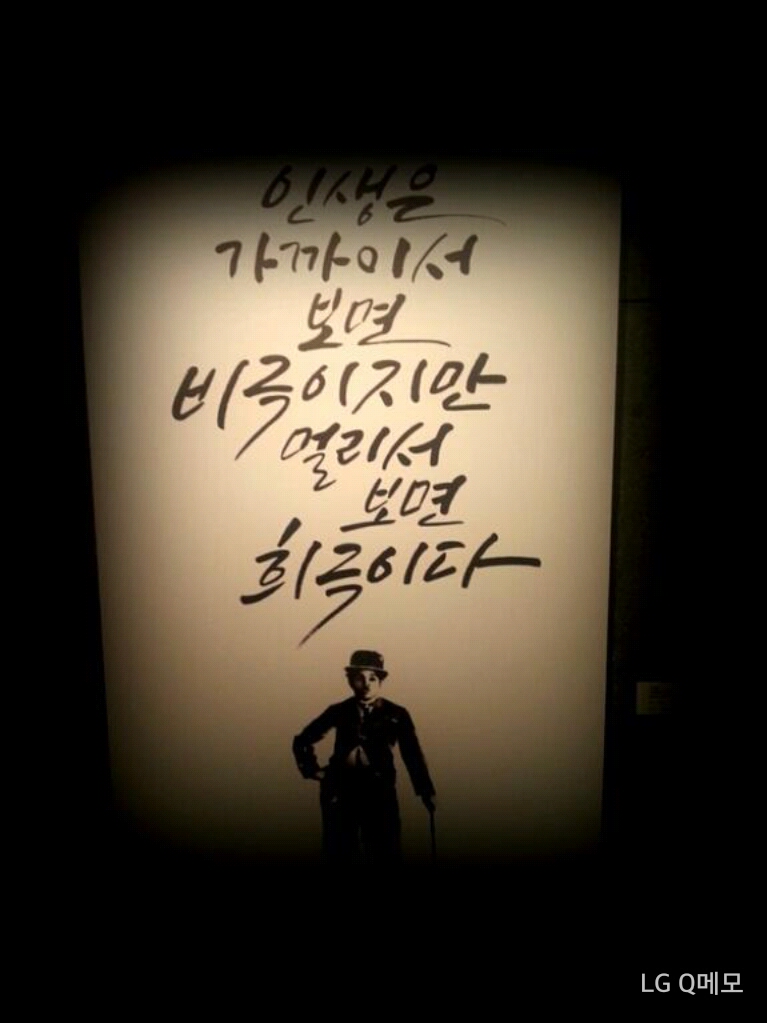 인생은
가까이서
보면
비극이지만
멀리서
보면
희극이다
LG Q메모